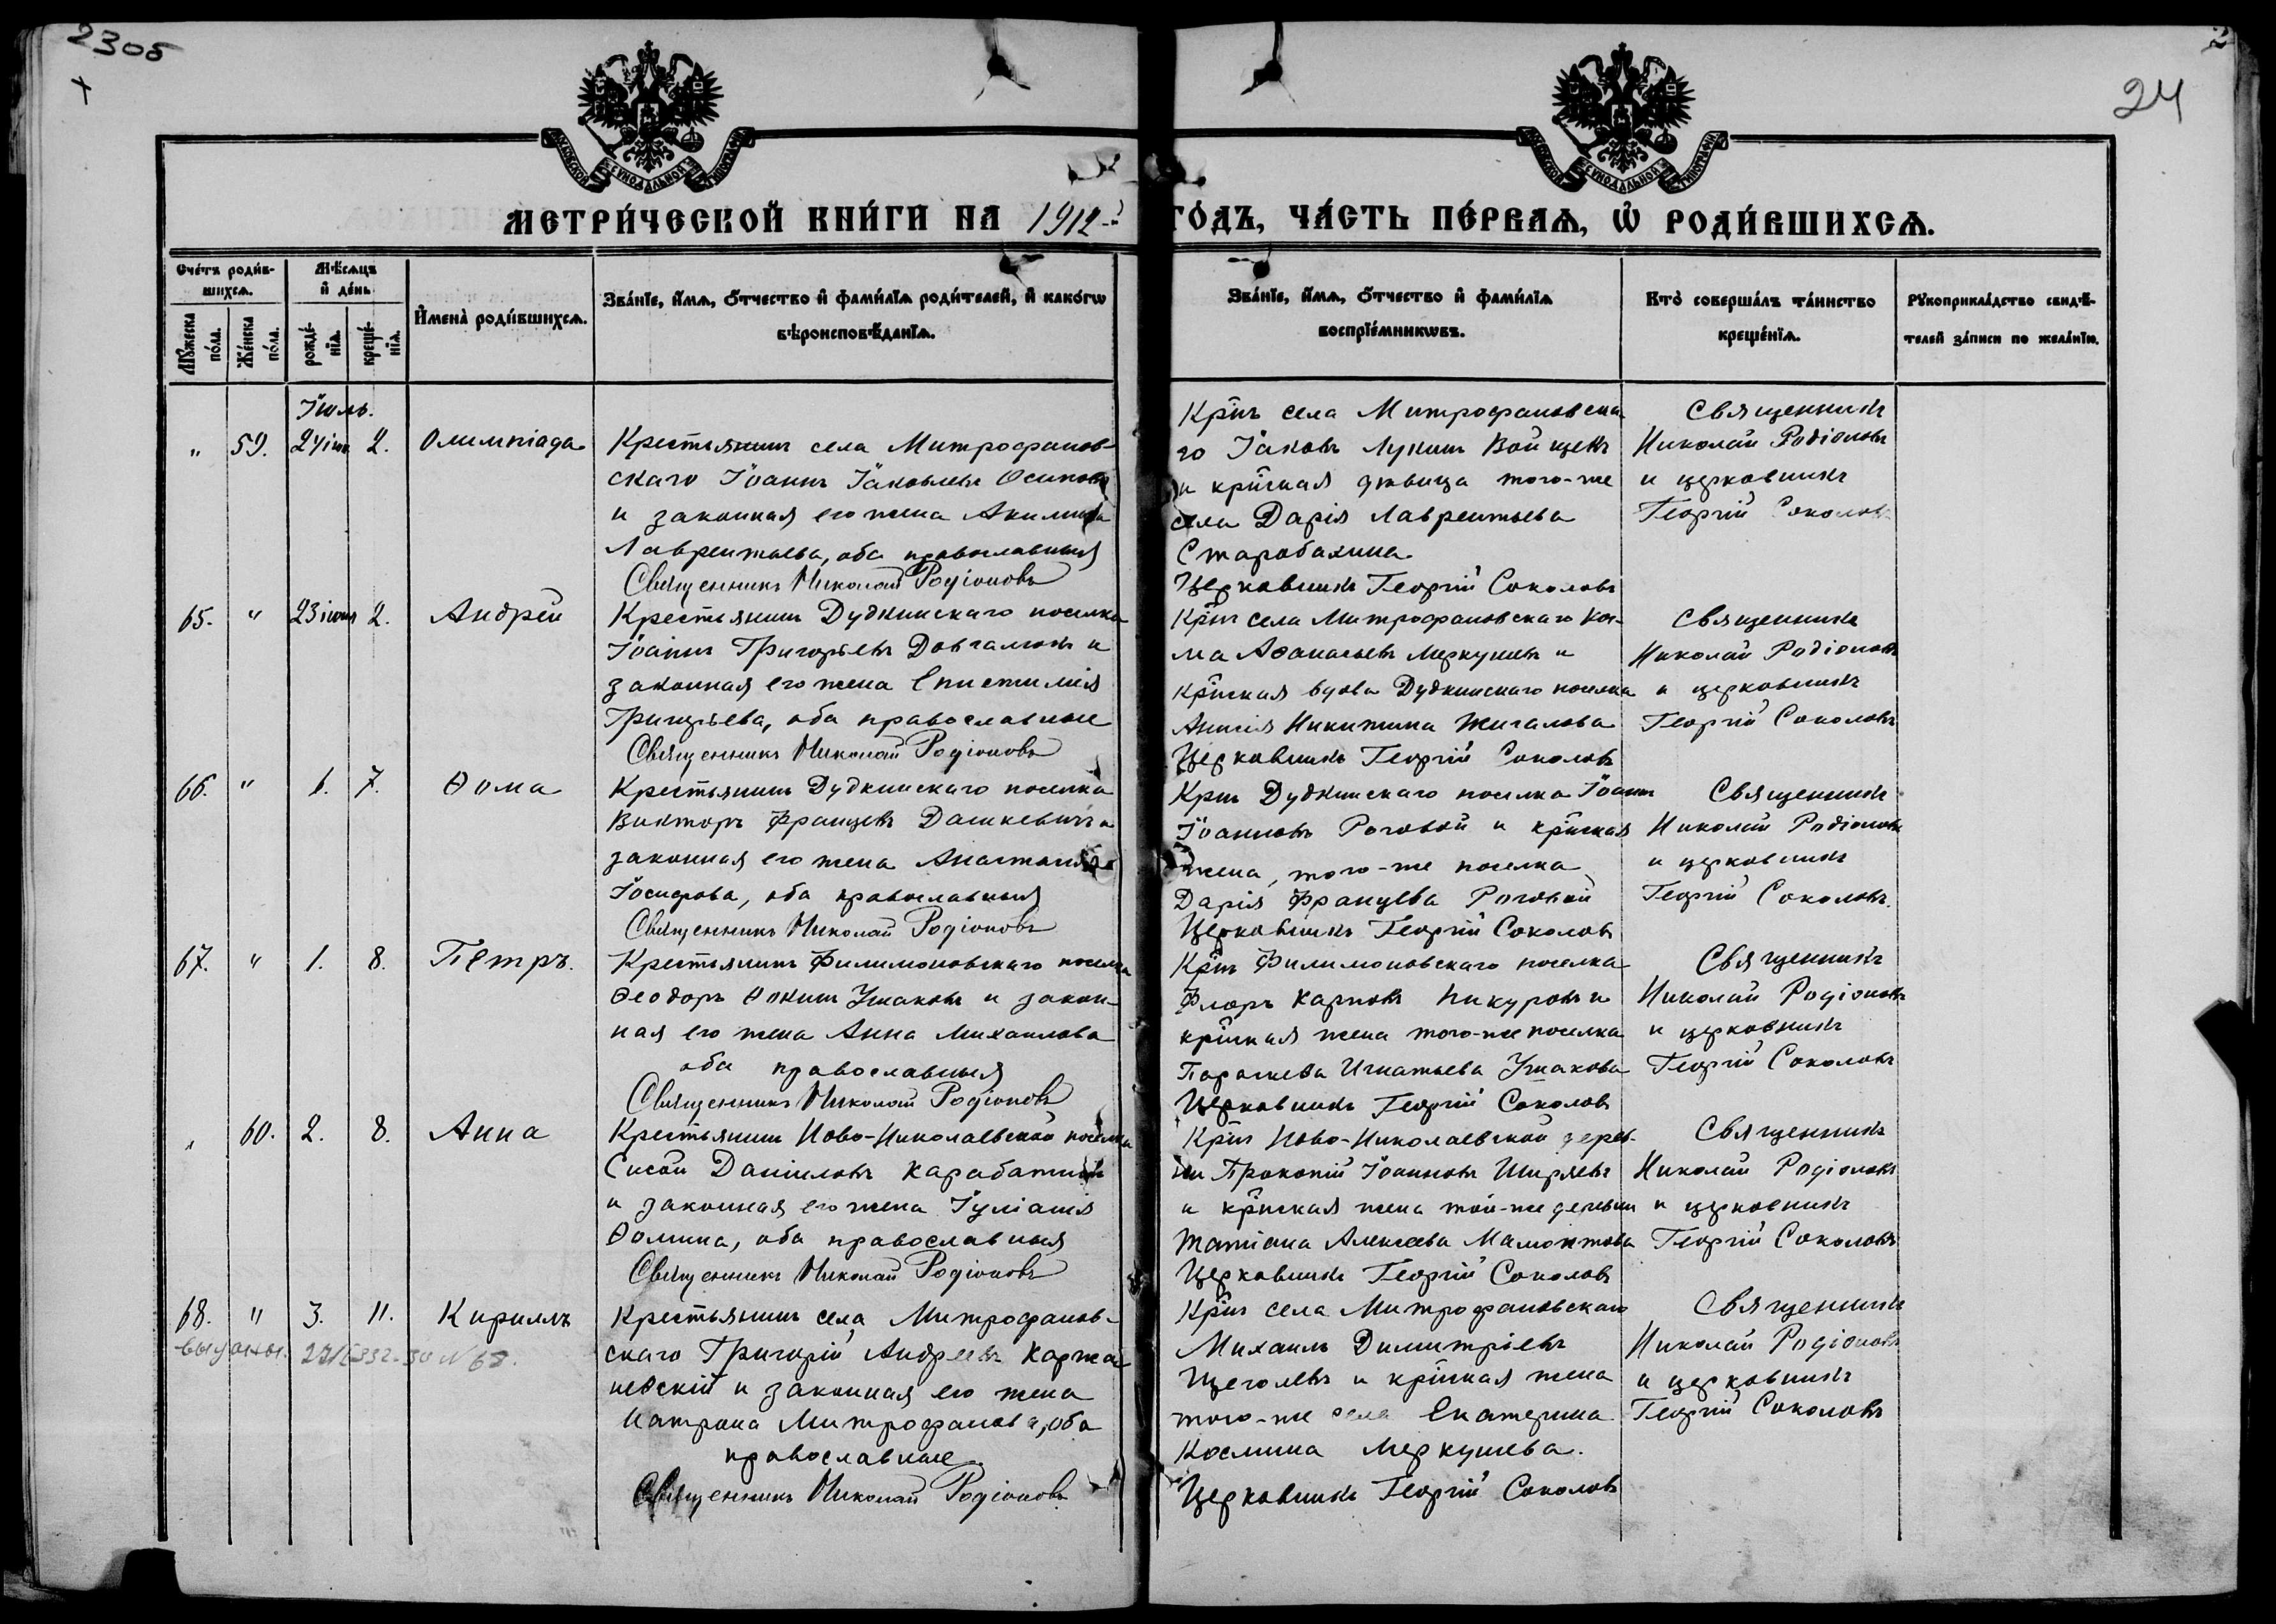 23об
24
МЕТРИ́ЧЕСКОЙ КНИ́ГИ НА 1912 ГО́ДЪ, ЧА́СТЬ ПЕ́РВАѦ, Ѡ҆ РОДИ́ВШИХСѦ.
Сче́тъ роди́в-
шихсѧ.
Мꙋ́жеска по́ла.
Же́нска по́ла.
Мѣ́сѧцъ и҆ де́нь
рожде́нїѧ.
креще́нїѧ.
И҆мена̀ роди́вшихсѧ.
Зва́нїе, и҆́мѧ, ѻ҆́тчество и҆ фами́лїѧ роди́телей, и҆ како́гѡ
вѣроисповѣ́данїѧ.
Зва́нїе, и҆́мѧ, ѻ҆́тчество и҆ фами́лїѧ
воспрїе́мникѡвъ.
Кто̀ соверша́лъ та́инство
креще́нїѧ.
Рꙋкоприкла́дство свидѣ́-
телей за́писи по жела́нїю.
Іюль.
" 59. 24 іюн 2. Олимпіада
Крестьянинъ села Митрофанов-
скаго Іоаннъ Іаковлевъ Осиповъ
и законная его жена Акилина
Лаврентьева, оба православныя
Священникъ Николай Родіоновъ
Кр̃нъ села Митрофановска-
го Іаковъ Лукинъ Войцехъ
и кр̃нская дѣвица того-же
села Дарія Лаврентьева
Старобахина.
Церковникъ Георгій Соколовъ
Священникъ
Николай Родіоновъ
и церковникъ
Георгій Соколовъ
65. " 23 іюня 2. Андрей
Крестьянинъ Дудкинскаго поселка
Іоаннъ Григорьевъ Довгалюкъ и
законная его жена Епистимія
Григорьева, оба православные
Священникъ Николай Родіоновъ
Кр̃нъ села Митрофановскаго Коз-
ма Аѳанасьевъ Меркушевъ и
кр̃нская вдова Дудкинскаго поселка
Анисія Никитина Жигалова
Церковникъ Георгій Соколовъ
Священникъ
Николай Родіоновъ
и церковникъ
Георгій Соколовъ
66. " 1. 7. Ѳома
Крестьянинъ Дудкинскаго поселка
Викторъ Францевъ Дашкевичъ и
законная его жена Анастасія
Іосифова, оба православныя
Священникъ Николай Родіоновъ
Крнъ Дудкинскаго поселка Іоаннъ
Іоанновъ Роговой и кр̃нская
жена, того-же поселка
Дарія Францева Роговой
Церковникъ Георгій Соколовъ
Священникъ
Николай Родіоновъ
и церковникъ
Георгій Соколовъ.
67. " 1. 8. Петръ.
Крестьянинъ Филимоновскаго поселка
Ѳеодоръ Ѳокинъ Ушаковъ и закон-
ная его жена Анна Михаилова
оба православныя
Священникъ Николай Родіоновъ
Кр̃нъ Филимоновскаго поселка
Флоръ Карповъ Пикуровъ и
кр̃нская жена того-же поселка
Параскева Игнатьева Ушакова
Церковникъ Георгій Соколовъ
Священникъ
Николай Родіоновъ
и церковникъ
Георгій Соколовъ
" 60. 2. 8. Анна
Крестьянинъ Ново-Николаевской поселка
Сисой Даніиловъ Карабатинъ
и законная его жена Іуліанія
Ѳомина, оба православныя
Священникъ Николай Родіоновъ
Кр̃нъ Ново-Николаевской дерев-
ни Прокопій Іоанновъ Ширяевъ
и кр̃нская жена той-же деревни
Татіана Алексѣева Мамонтова
Церковникъ Георгій Соколовъ
Священникъ
Николай Родіоновъ
и церковникъ
Георгій Соколовъ
68. " 3. 11. Кириллъ
Крестьянинъ села Митрофанов-
скаго Григорій Андреевъ Каржа-
невскій и законная его жена
Матрона Митрофанова, оба
православные
Священникъ Николай Родіоновъ
Кр̃нъ села Митрофановскаго
Михаилъ Димитріевъ
Щеголевъ и кр̃нская жена
того-же села Екатерина
Космина Меркушева.
Церковникъ Георгій Соколовъ
Священникъ
Николай Родіоновъ
и церковникъ
Георгій Соколовъ